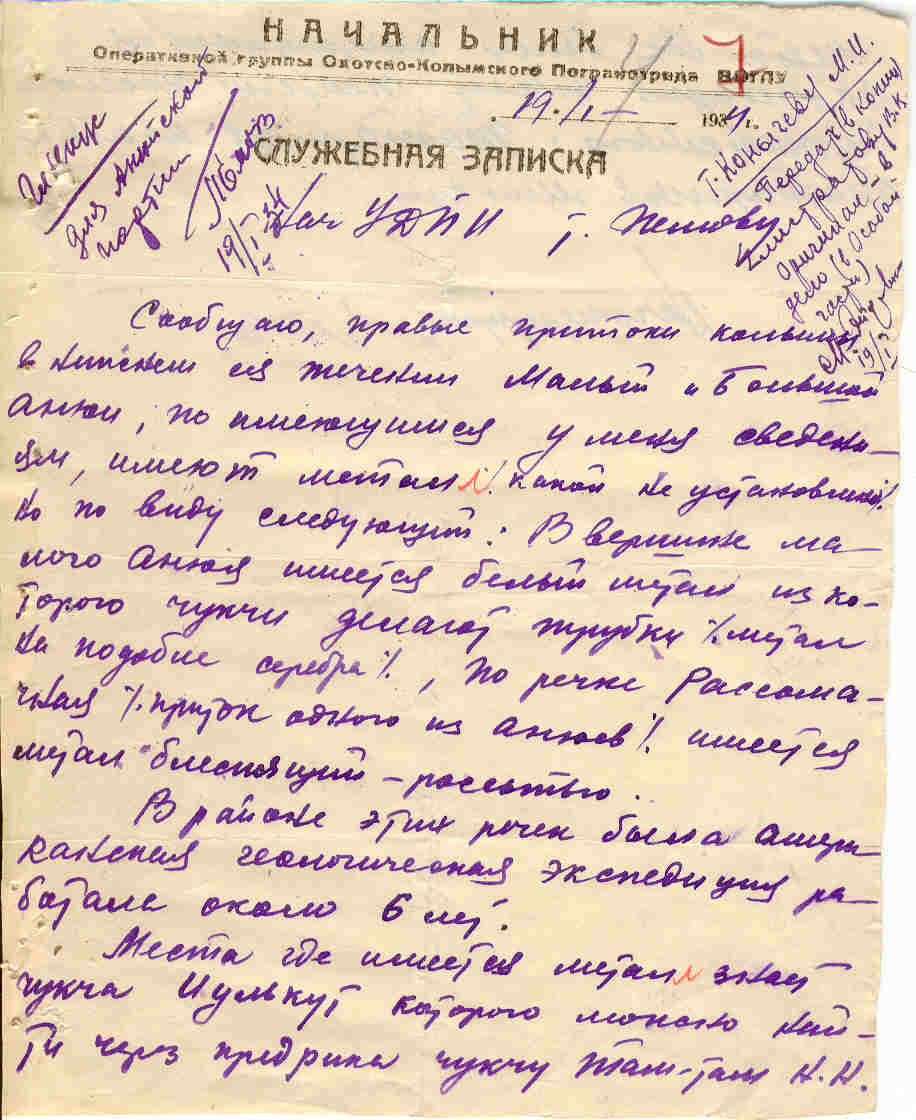 НАЧАЛЬНИК
Оперативной группы Охотско-Колымского Погранотряда ВОГПУ
7
19·/I– 1934 г.
СЛУЖЕБНАЯ ЗАПИСКА
для Анюйской
партии
19/I 34
Т. Конычеву М.И.
Передать (в копии)
В.К.
Оригинал – в
дело (в Особой
части)
19/I
Нач УДПИ т.
Сообщаю, правые притоки колымы
в нижнем ея течении Малый и Большой
Анюи, по имеющимся у меня сведени–
ям, имеют металл. какой не установлено
но по виду следующий: В вершине ма–
лого Анюя имеется белый метал из ко–
торого чукчи делают трубки /.метал
на подобие серебра/., по речке Рассома–
шная /.приток одного из анюев/. имеется
метал блестящий – россыпью.
В районе этих речек была амери
канская геологическая экспедиция ра–
ботала около 6 лет.
Места где имеется металл знает
чукча Иулькут которого можно най–
ти через предрика чукчу Там-Там Н.Н.